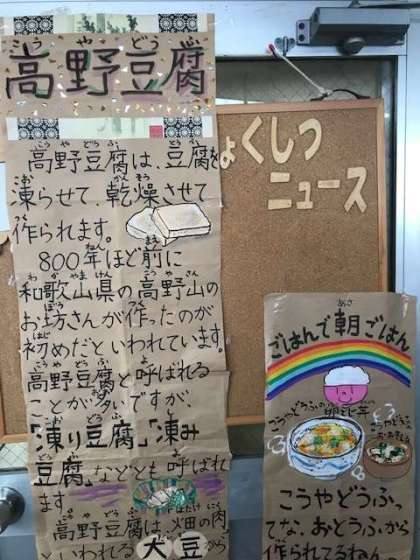 高野豆腐
こうやどうふ
高野豆腐は、豆腐を
凍らせて、乾燥させて
作られます。
800年ほど前に
和歌山県の高野山の
お坊さんが作ったのが
初めだといわれています。
高野豆腐と呼ばれる
ことが多いですが、
「凍り豆腐」「凍み
豆腐」などとも呼ばれ
ます。
高野豆腐は、畑の肉
といわれる大豆から
ょくしつ
ニュース
ごはんで朝ごはん
こうやどうふの卵とじ丼
こうやどうふ
こうやどうふっ
てな、おとうふから